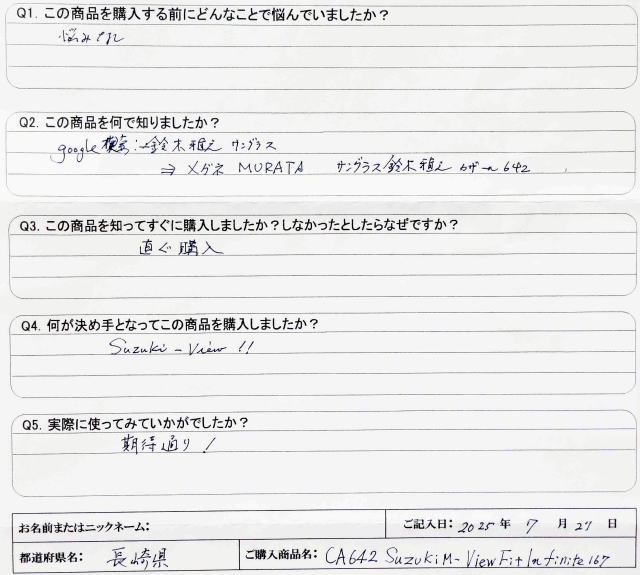 Q1. この商品を購入する前にどんなことで悩んでいましたか？
悩みなし
Q2. この商品を何で知りましたか？
google検索：→鈴木雅之 サングラス
⇒ メガネ MURATA サングラス鈴木雅之 642
Q3. この商品を知ってすぐに購入しましたか？しなかったとしたらなぜですか？
直ぐ購入
Q4. 何が決め手となってこの商品を購入しましたか？
Suzuki - View !!
Q5. 実際に使ってみていかがでしたか？
期待通り！
お名前またはニックネーム：
ご記入日：2025年 7月27日
都道府県名：長崎県
ご購入商品名：CA642 Suzuki M- View Fit Infinite 167